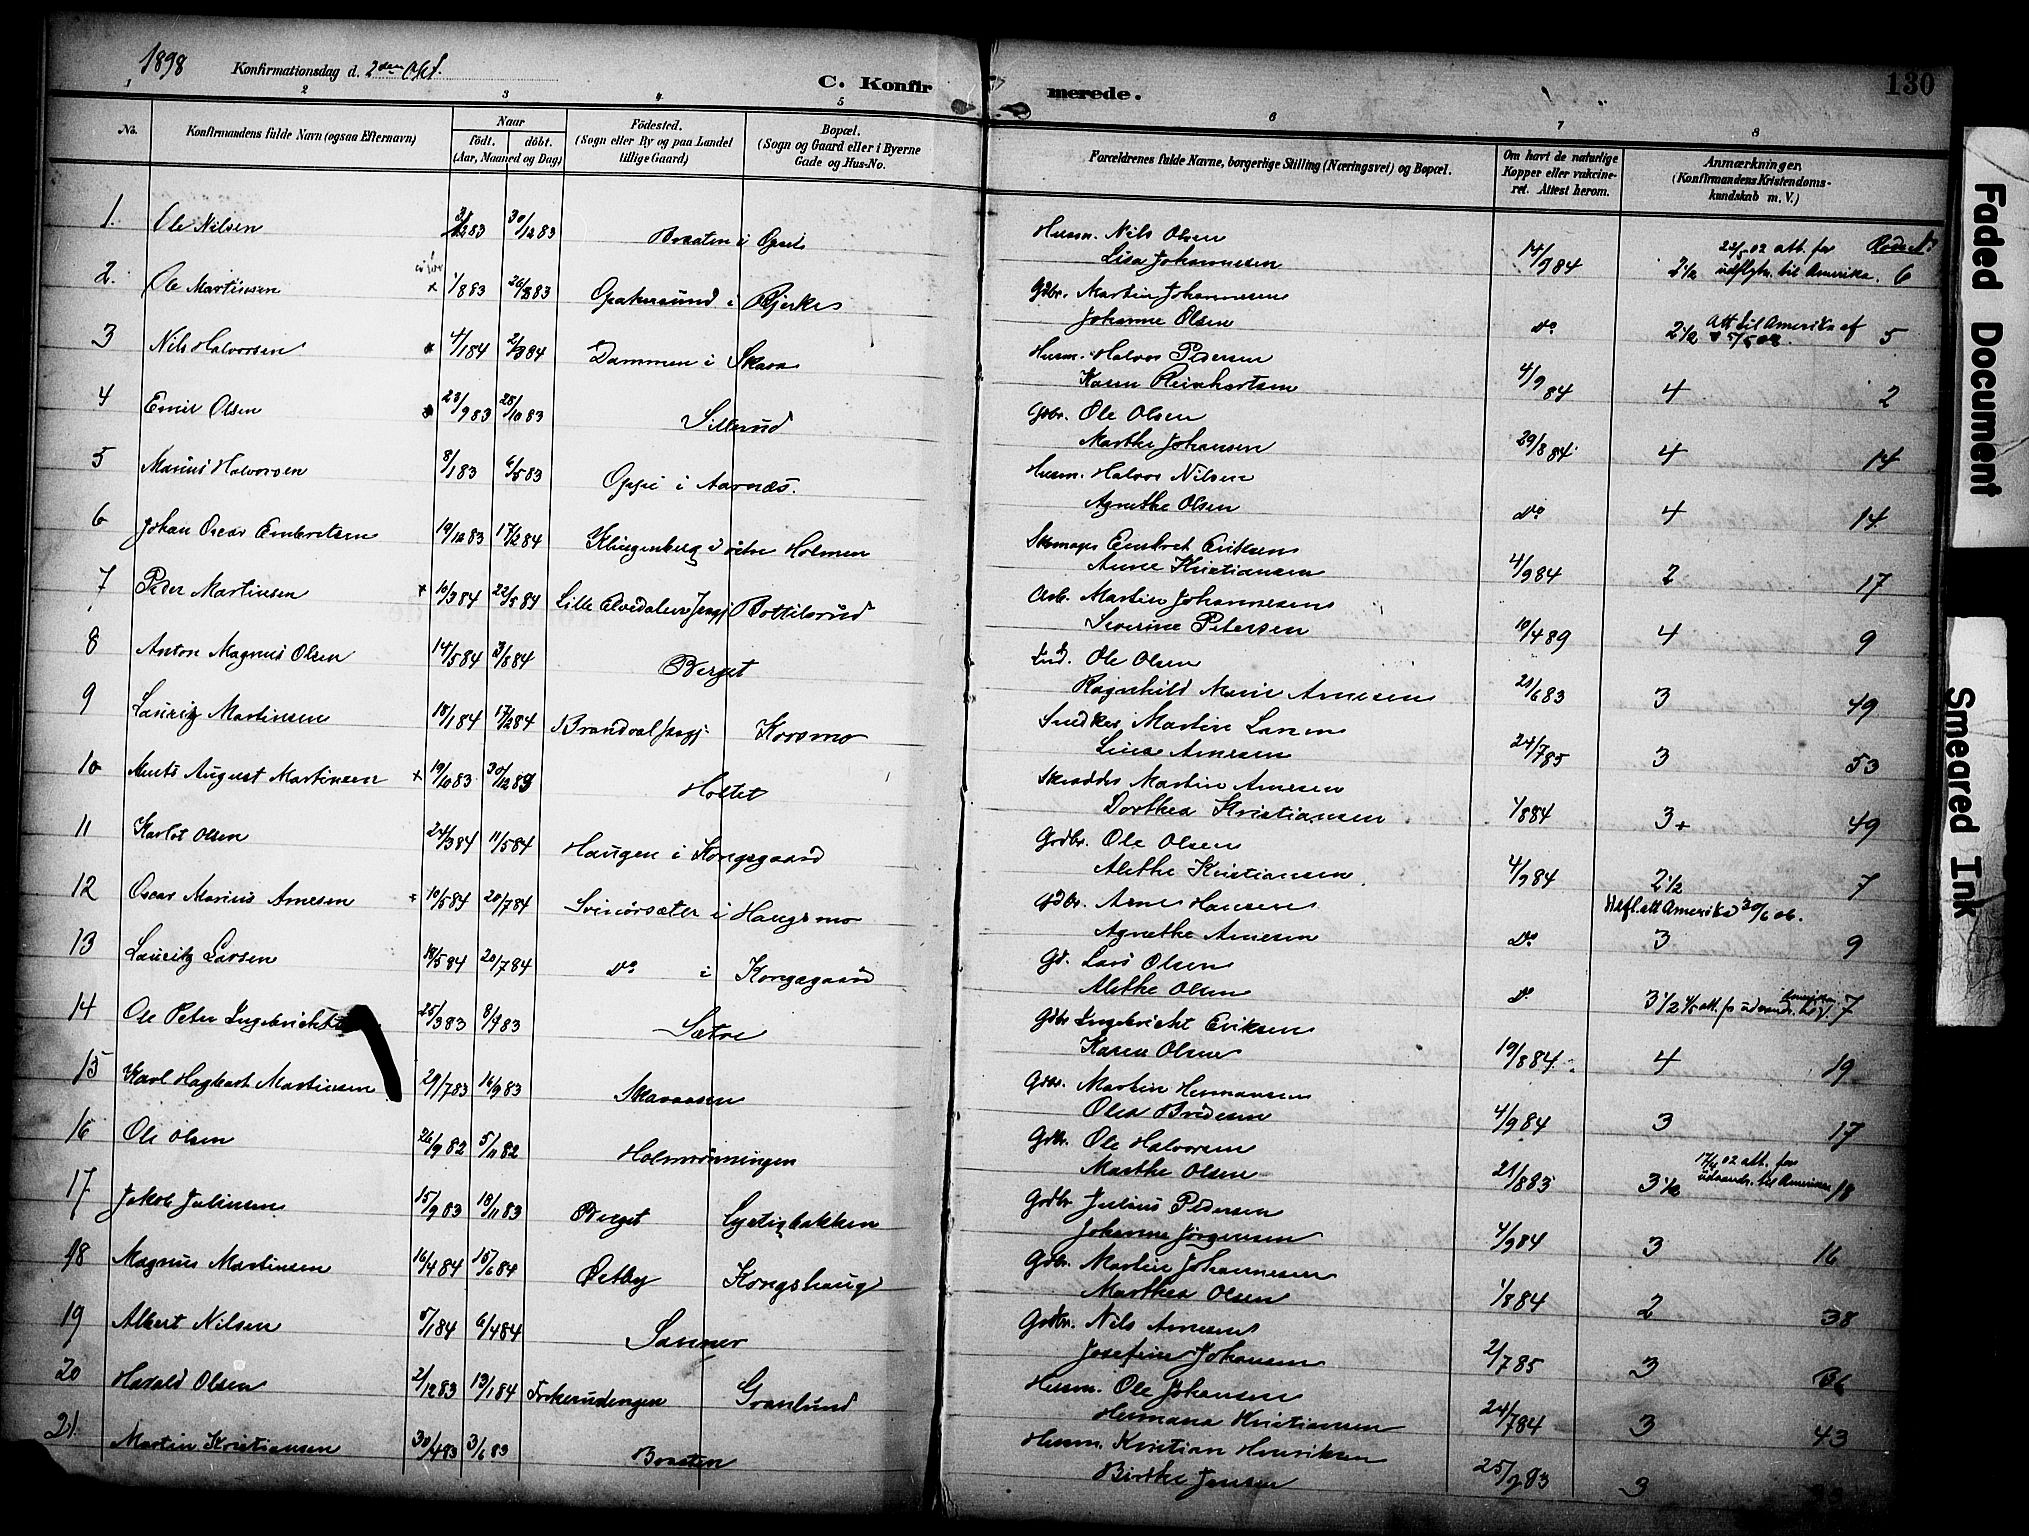 1898 Konfirmationsdag d. 2den Okt. C. Konfirmerede. 130
1 2 3 4 5 6 7 8
No. Konfirmandens fulde Navn (ogsaa Efternavn)
Naar
födt. döbt.
(Aar, Maaned og Dag)
Födested.
(Sogn eller By og paa Landet
tillige Gaard)
Bopæl.
(Sogn og Gaard eller i Byerne
Gade og Hus-No.
Forældrenes fulde Navne, borgerlige Stilling (Næringsvei) og Bopæl.
Om havt de naturlige
Kopper eller vakcine-
ret. Attest herom.
Anmærkninger.
(Konfirmandens Kristendoms-
kundskab m. V.)
1. Ole Nilsen 30/12 83 Braaten i Opset
Husm. Nils Olsen
Lisa Johannesen 14/9 84 2 1/2 22/5 02 att. for
udflytn. til Amerika. 6
2. Ole Martinsen 1/8 83 26/8 83 i Bjerke
Gdbr. Martin Johannesen
Johanne Olsen Do 2 1/2 Att til Amerika af 5
3 Nils Halvorsen 4/1 84 2/3 84 Dammen i Skara
Husm. Halvor Pedersen
Karen Reinhartsen 4/9 84 4 2
4 Emil Olsen 23/9 83 28/10 83 Sillerud
Gdbr. Ole Olsen
Marthe Johansen 29/8 84 4 14
5 Marius Halvorsen 8/1 83 6/5 83 i Aarnæs.
Husm. Halvor Nilsen
Agnethe Olsen Do 4 14
6 Johan Oscar Embretsen 19/12 83 17/2 84 Klingenberg i Holmen
Skomager Embret Eriksen
Anne Kristiansen 4/9 84 2 17
7 Peder Martinsen 10/3 84 22/5 84 Lille Elvedalen Bottilsrud
Arb. Martin Johannesen
Severine Petersen 10/4 89 4 9
8 Anton Magnus Olsen 14/5 84 3/8 84 Berget
Ind. Ole Olsen
Ragnhild Marie Arnesen 3 49
9 Lauritz Martinsen 18/1 84 17/2 84 Brandval Korsmo
Snedker Martin Larsen
Lina Arnesen 24/7 85 3 53
10 August Martinsen 19/10 83 30/12 83 Holtet
Skrædder Martin Arnesen
Dorthea Kristiansen 1/8 84 3+ 49
11 Karlot Olsen 24/3 84 11/5 84 Haugen i Kongsgaard
Grdbr. Ole Olsen
Alethe Kristiansen 4/9 84 2 1/2 7
12 Oscar Marius Arnesen 10/5 84 20/7 84 i Haugsmo
Gdbr. Arne Hansen
Agnethe Arnesen Do 3 9
Udfl. att Amerika 30/6 06.
13 Lauritz Larsen 18/5 84 20/7 84 Do i Kongsgaard
Gd. Lars Olsen
Alethe Olsen Do 3 1/2 att. 7
14 Ole Peter Ingebrichtsen 25/3 83 8/4 83 Sætre
Gdbr Ingebricht Eriksen
Karen Olsen 19/8 84. 4 19
15 Karl Hagbart Martinsen 29/7 83 16/9 83 Skaraasen
Gdbr. Martin Hermansen
Olea Bredesen 4/9 84 3 17
16 Ole Olsen 26/9 82 5/11 82 Holmrönningen
Gdbr. Ole Halvorsen
Marthe Olsen 21/8 83 3 1/2 17/4 02 att. for
udvandr. til Amerika 18
17 Jakob Juliusen 15/9 83 18/11 83 Berget Lystigbakken
Grdbr Julius Pedersen
Johanne Jörgensen 4/9 84 3 16
18 Magnus Martinsen 16/4 84 15/6 84 Östby Kongshaug
Gdbr. Martin Johannesen
Marthea Olsen 1/8 84 2 38
19 Albert Nilsen 5/1 84 6/4 84 Sanner
Grdbr. Nils Arnesen
Josefine Johansen 2/7 85 3 36
20 Harald Olsen 2/12 83 13/1 84 Granlund
Husm. Ole Johansen
Hermana Kristiansen 24/7 84 3 43
21. Martin Kristiansen 30/4 83 3/6 83 Braaten
Husm. Kristian Henriksen
Birthe Jensen 25/9 83 3
Faded Document
Smeared Ink